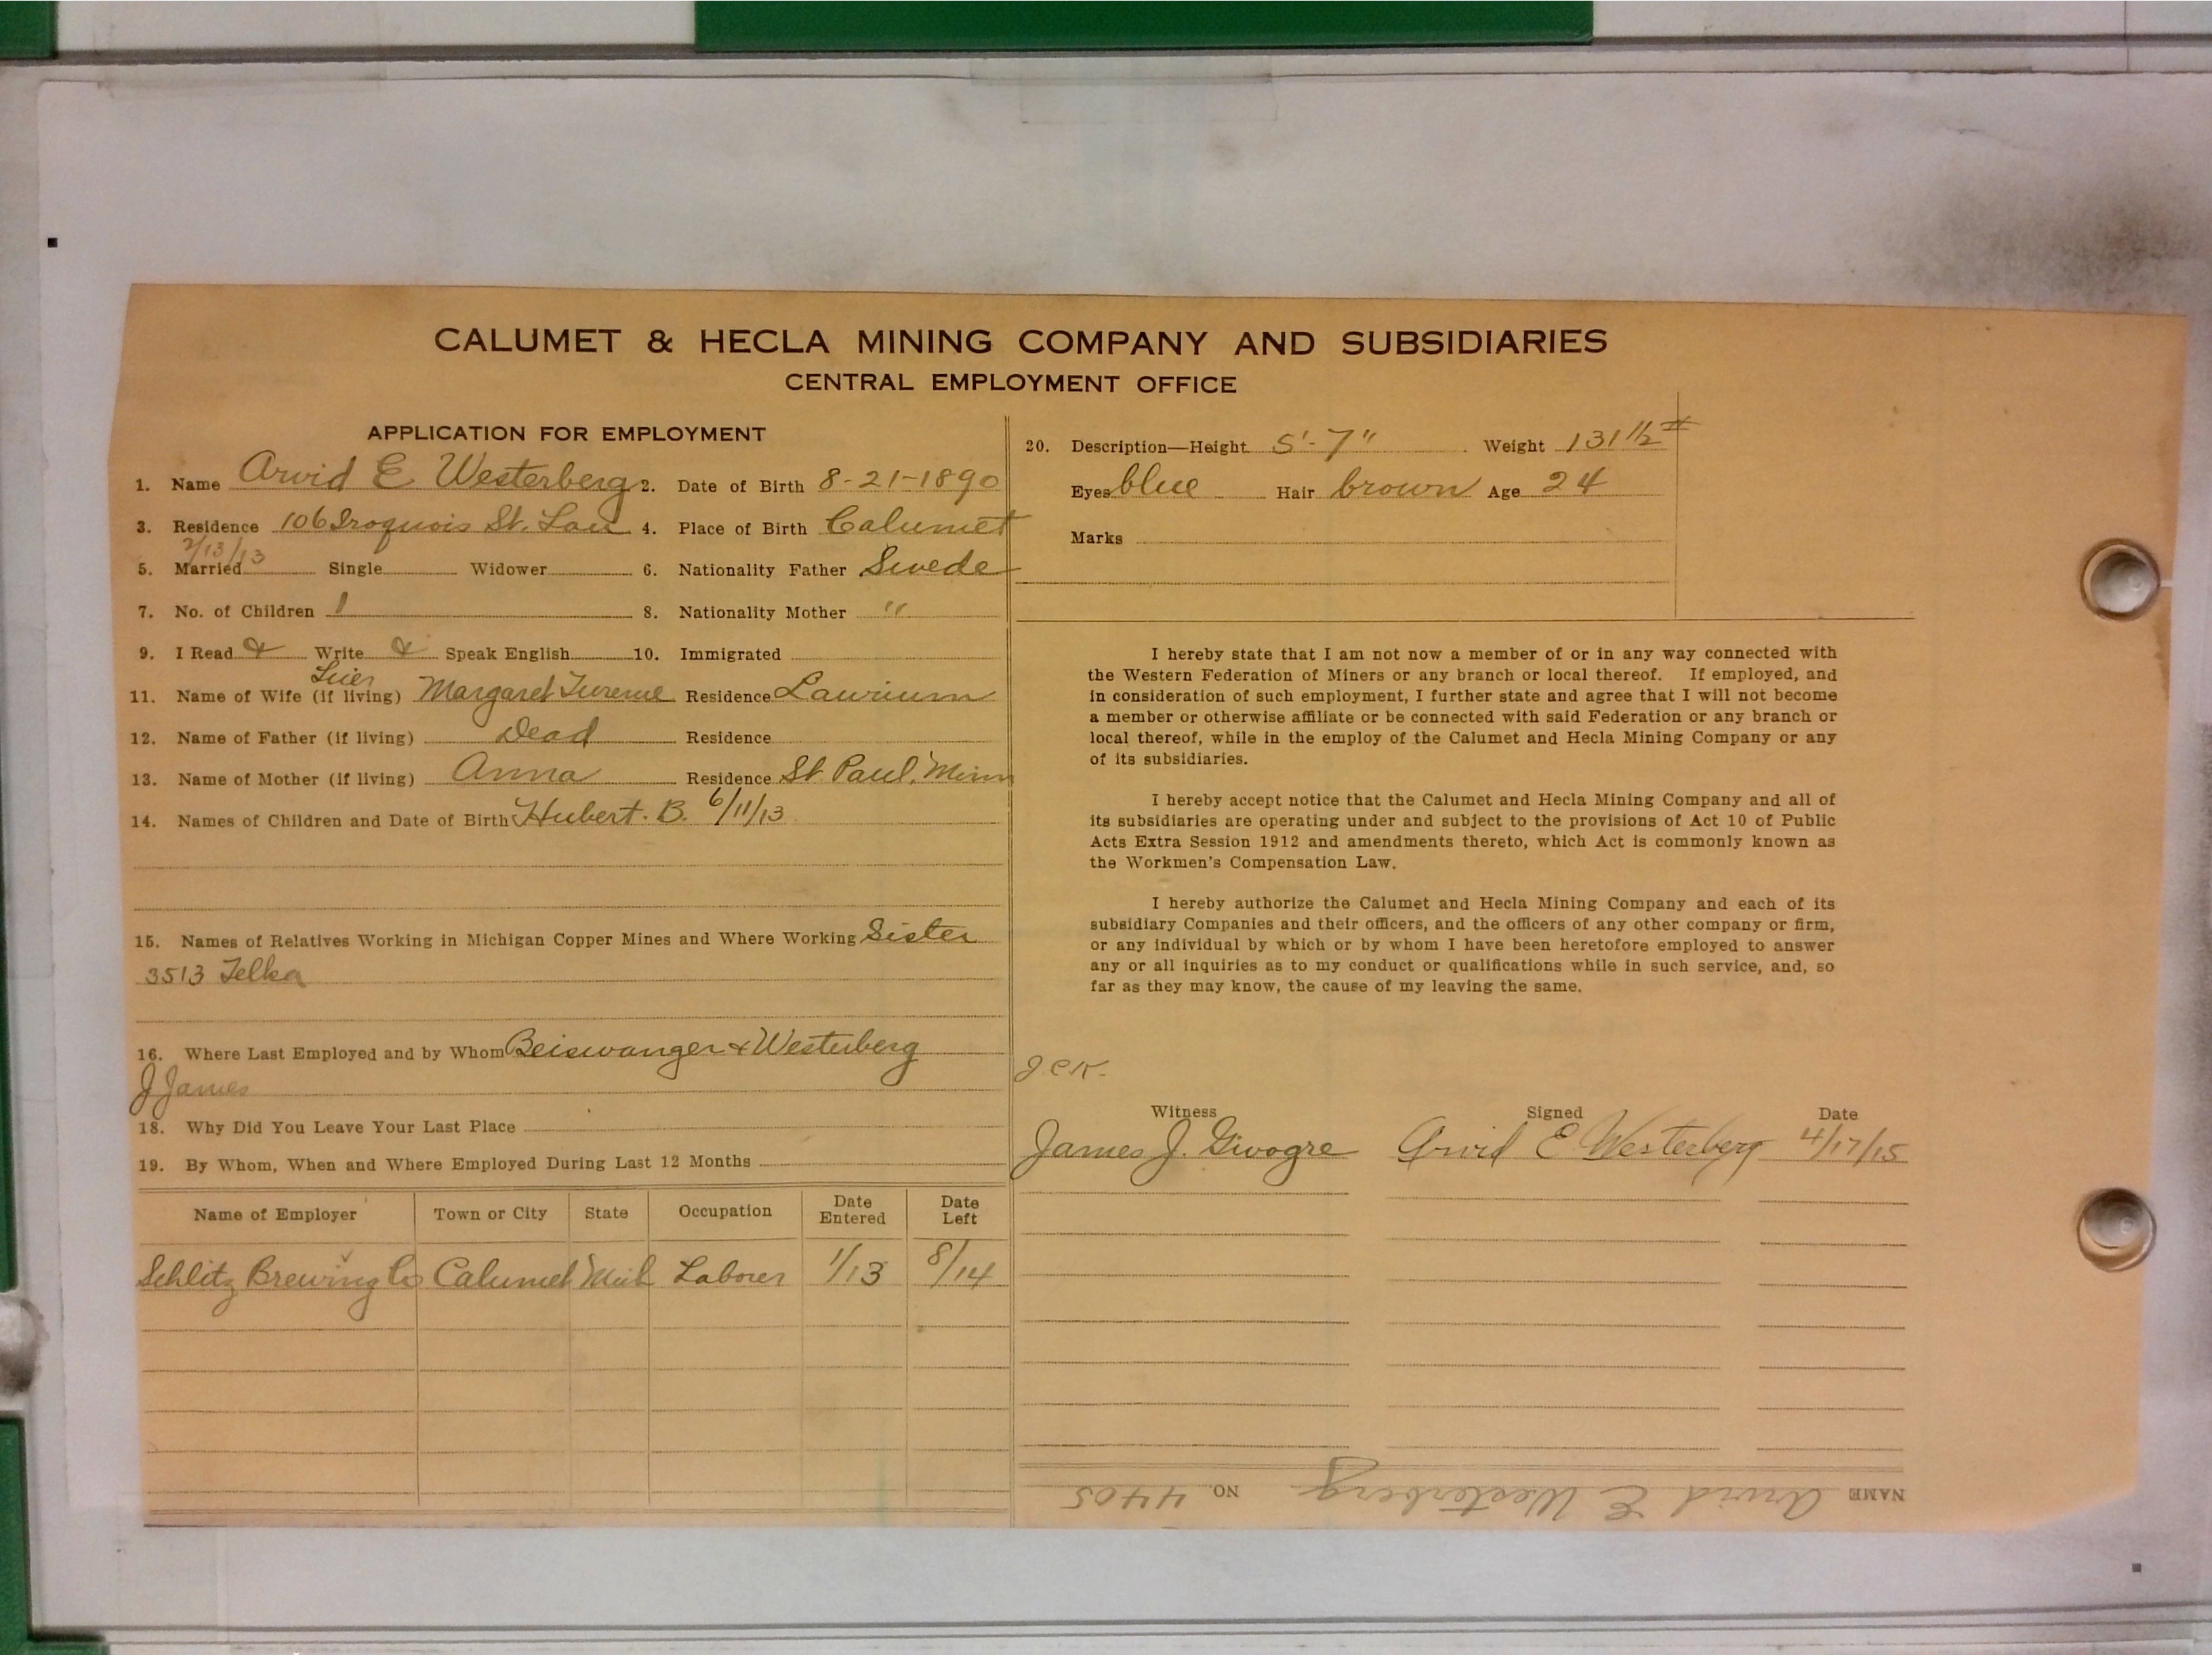 CALUMET & HECLA MINING COMPANY AND SUBSIDIARIES
CENTRAL EMPLOYMENT OFFICE
APPLICATION FOR EMPLOYMENT
1. Name Arvid E Westerberg 2. Date of Birth 8-21-1890
3. Residence 106 Iroquois St. Lau 4. Place of Birth Calumet
2/13/13
5. Married Single Widower 6. Nationality Father Swede
7. No. of Children 1 8. Nationality Mother "
9. I Read & Write & Speak English 10. Immigrated
11. Name of Wife (if living) Margaret Residence Laurium
12. Name of Father (if living) Dead Residence
13. Name of Mother (if living) Anna Residence St Paul, Minn
14. Names of Children and Date of Birth Hubert. B. 6/11/13
15. Names of Relatives Working in Michigan Copper Mines and Where Working Sister
3513
16. Where Last Employed and by Whom Beiswanger & Westerberg
J James
18. Why Did You Leave Your Last Place
19. By Whom, When and Where Employed During Last 12 Months
Name of Employer Town or City State Occupation Date Entered Date Left
Schlitz Brewing Co Calumet Mich Laborer 1/13 8/14
20. Description—Height 5'-7" Weight 131 1/2 #
Eyes blue Hair brown Age 24
Marks
I hereby state that I am not now a member of or in any way connected with
the Western Federation of Miners or any branch or local thereof. If employed, and
in consideration of such employment, I further state and agree that I will not become
a member or otherwise affiliate or be connected with said Federation or any branch or
local thereof, while in the employ of the Calumet and Hecla Mining Company or any
of its subsidiaries.
I hereby accept notice that the Calumet and Hecla Mining Company and all of
its subsidiaries are operating under and subject to the provisions of Act 10 of Public
Acts Extra Session 1912 and amendments thereto, which Act is commonly known as
the Workmen's Compensation Law.
I hereby authorize the Calumet and Hecla Mining Company and each of its
subsidiary Companies and their officers, and the officers of any other company or firm,
or any individual by which or by whom I have been heretofore employed to answer
any or all inquiries as to my conduct or qualifications while in such service, and, so
far as they may know, the cause of my leaving the same.
Witness Signed Date
James J. Givogre Arvid E Westerberg 4/17/15
NAME Arvid E Westerberg NO. 4405